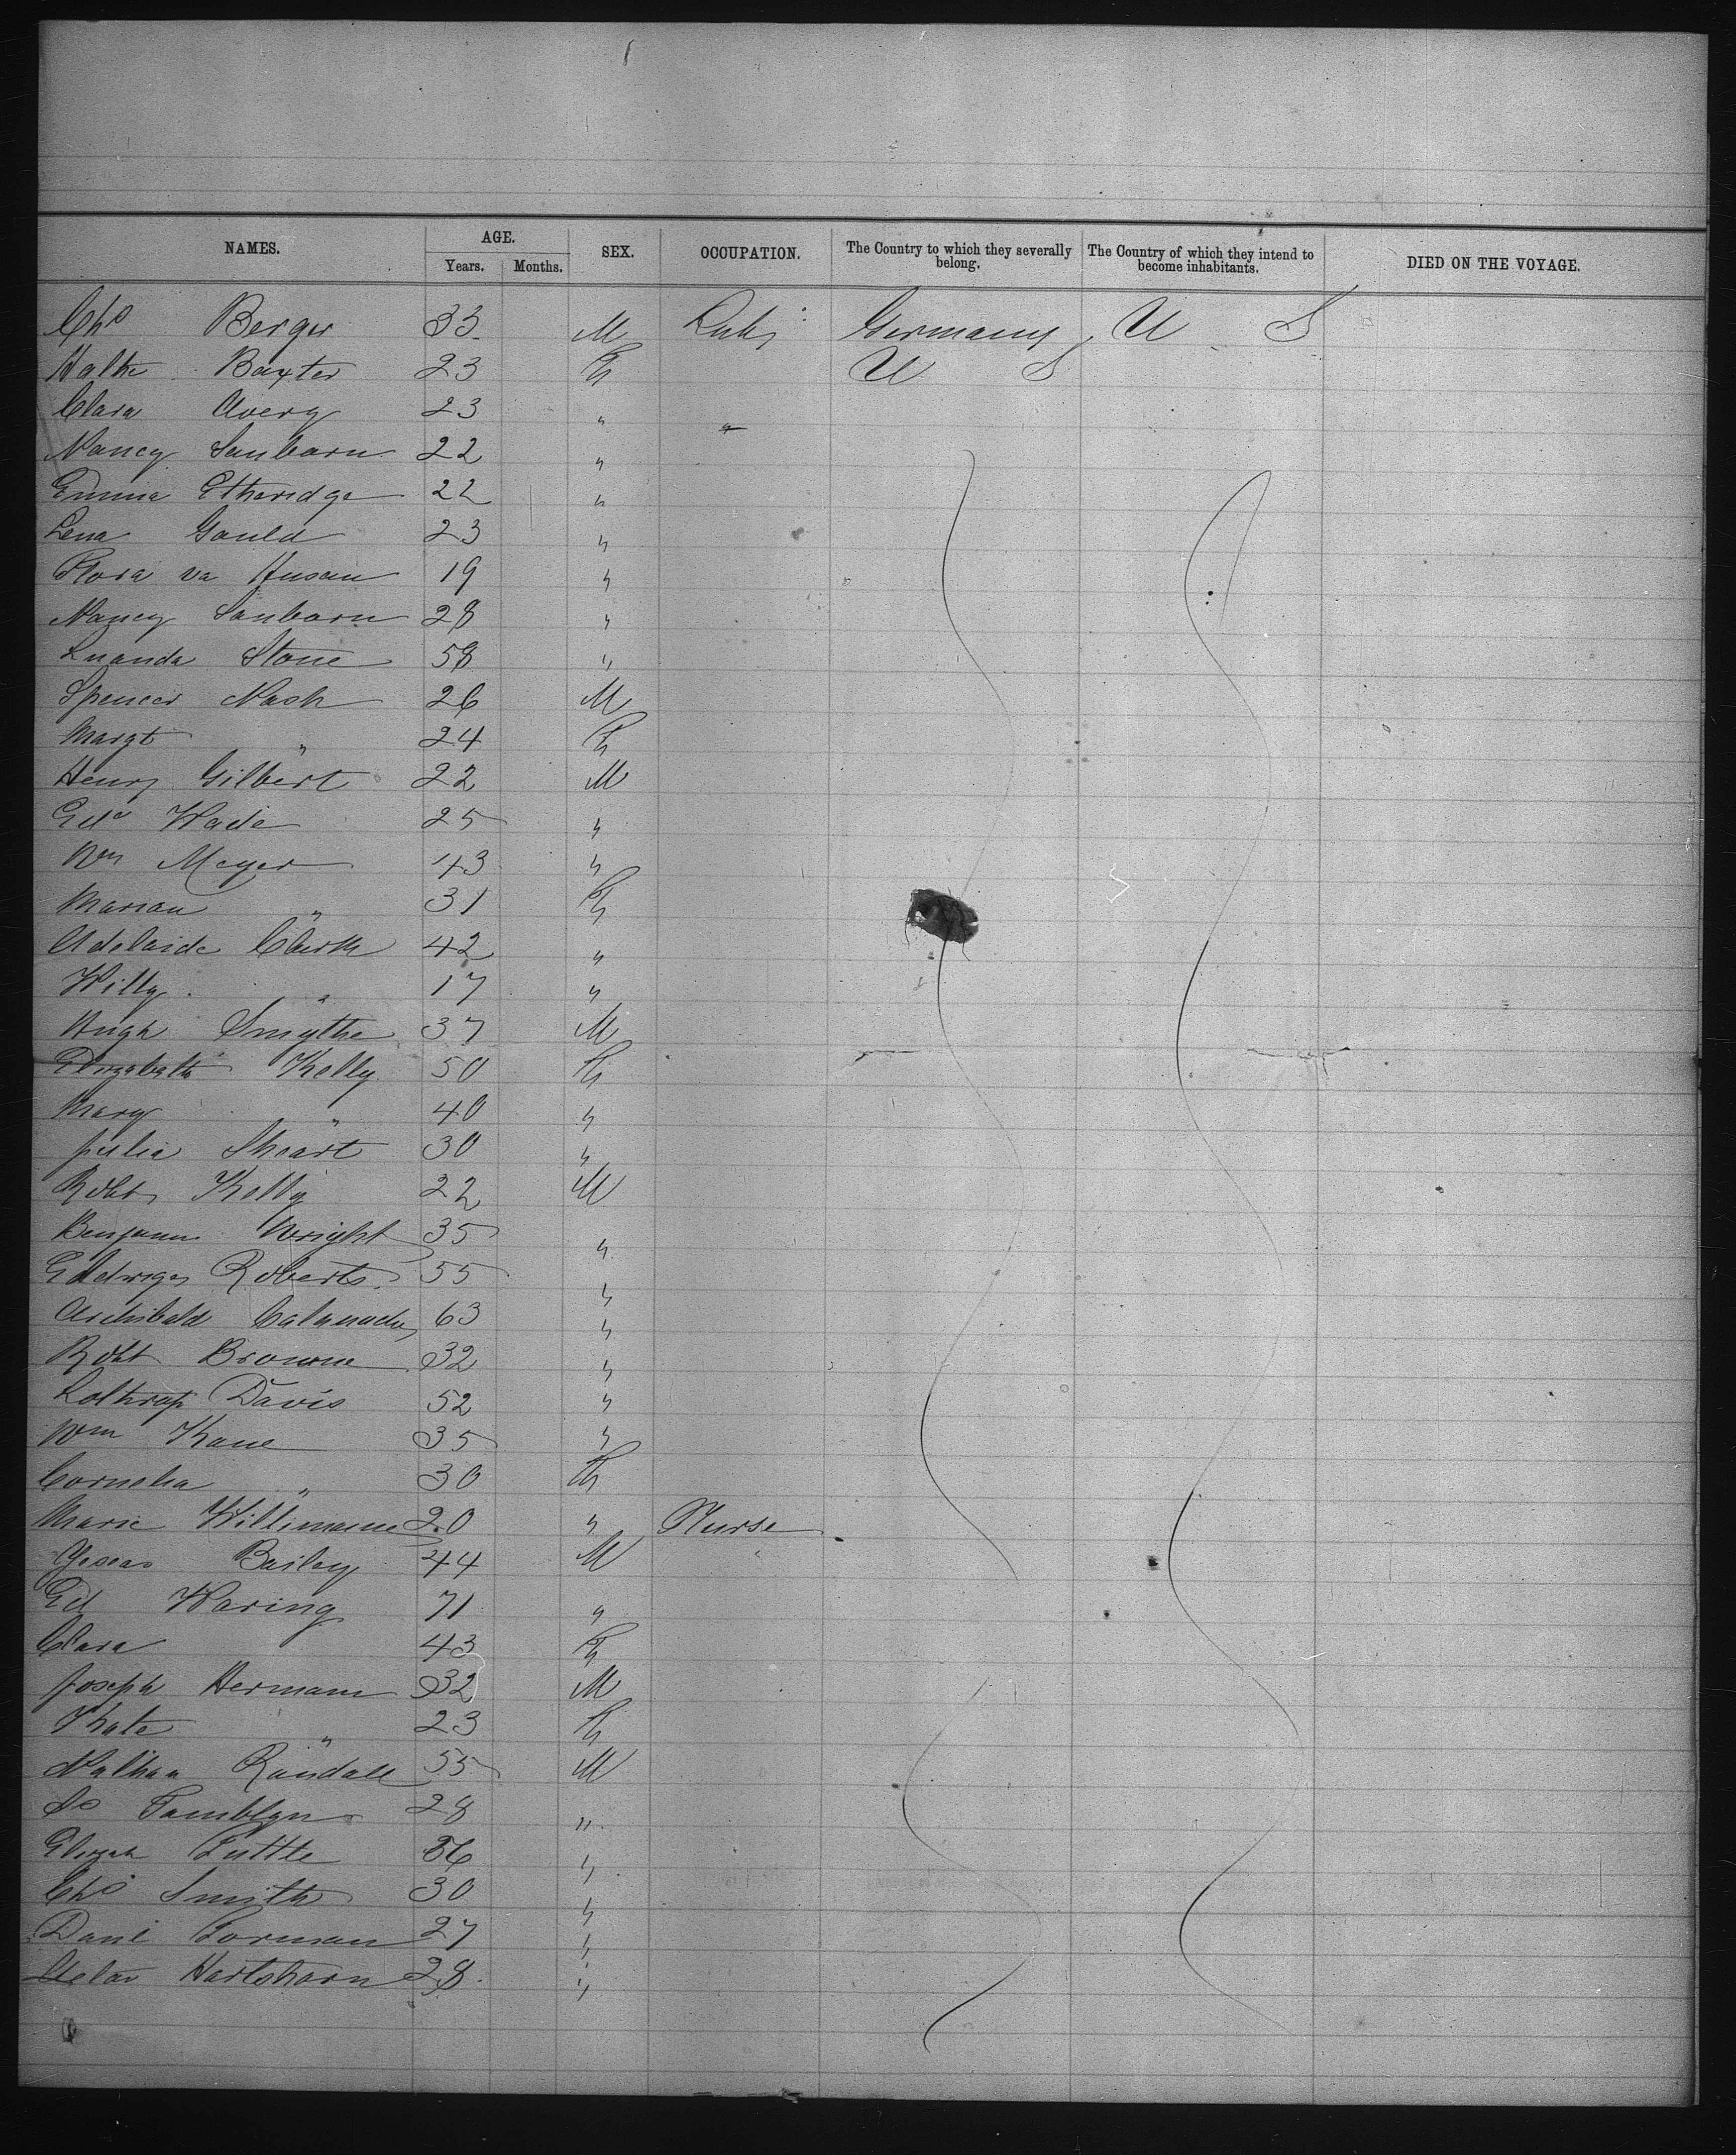 NAMES. AGE. SEX. OCCUPATION. The Country to which they severally belong. The Country of which they intend to become inhabitants. DIED ON THE VOYAGE.
Years. Months.
Chs Berger 33 M Germany U S
Baxter 23 F U S
Clara Avery 23 " "
Nancy Sanborn 22 "
Emma Etheridge 22 "
Lena Gould 23 "
Flora va 19 "
Nancy Sanborn 28 "
Luanda Stone 58 "
Spencer Nash 26 M
Margt " 24 F
Henry Gilbert 22 M
Edd Wade 25 "
Wm Meyer 43 "
Marian " 31 F
Adelaide 42 "
Willy " 17 "
Hugh Smythe 37 M
Elizabeth Kelly 50 F
Mary " 40 "
Julia 30 "
Robt Kelly 22 M
Benjamin Wright 35 "
Roberts 55 "
Archibald 63 "
Robt Browne 32 "
Lothrop Davis 52 "
Wm Kane 35 "
Cornelia " 30 F
Marie 20 " Nurse
Bailey 44 M
Ed Waring 71 "
Clara 43 F
Joseph Hermann 32 M
Kate " 23 F
Nathan Randall 55 M
Tamblyn 28 "
Elizah Tuttle 36 "
Chs Smith 30 "
Danl Forman 27 "
Hartshorn 28 "